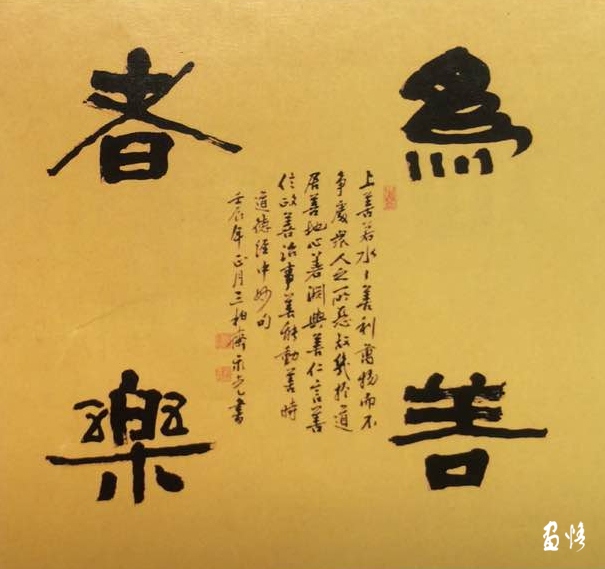 為善
者樂
上善若水〻善利萬物而不
爭處衆人之所惡故幾於道
居善地心善淵與善仁言善
信政善治事善能動善時
道德經中妙句
壬辰年正月三柏齋書